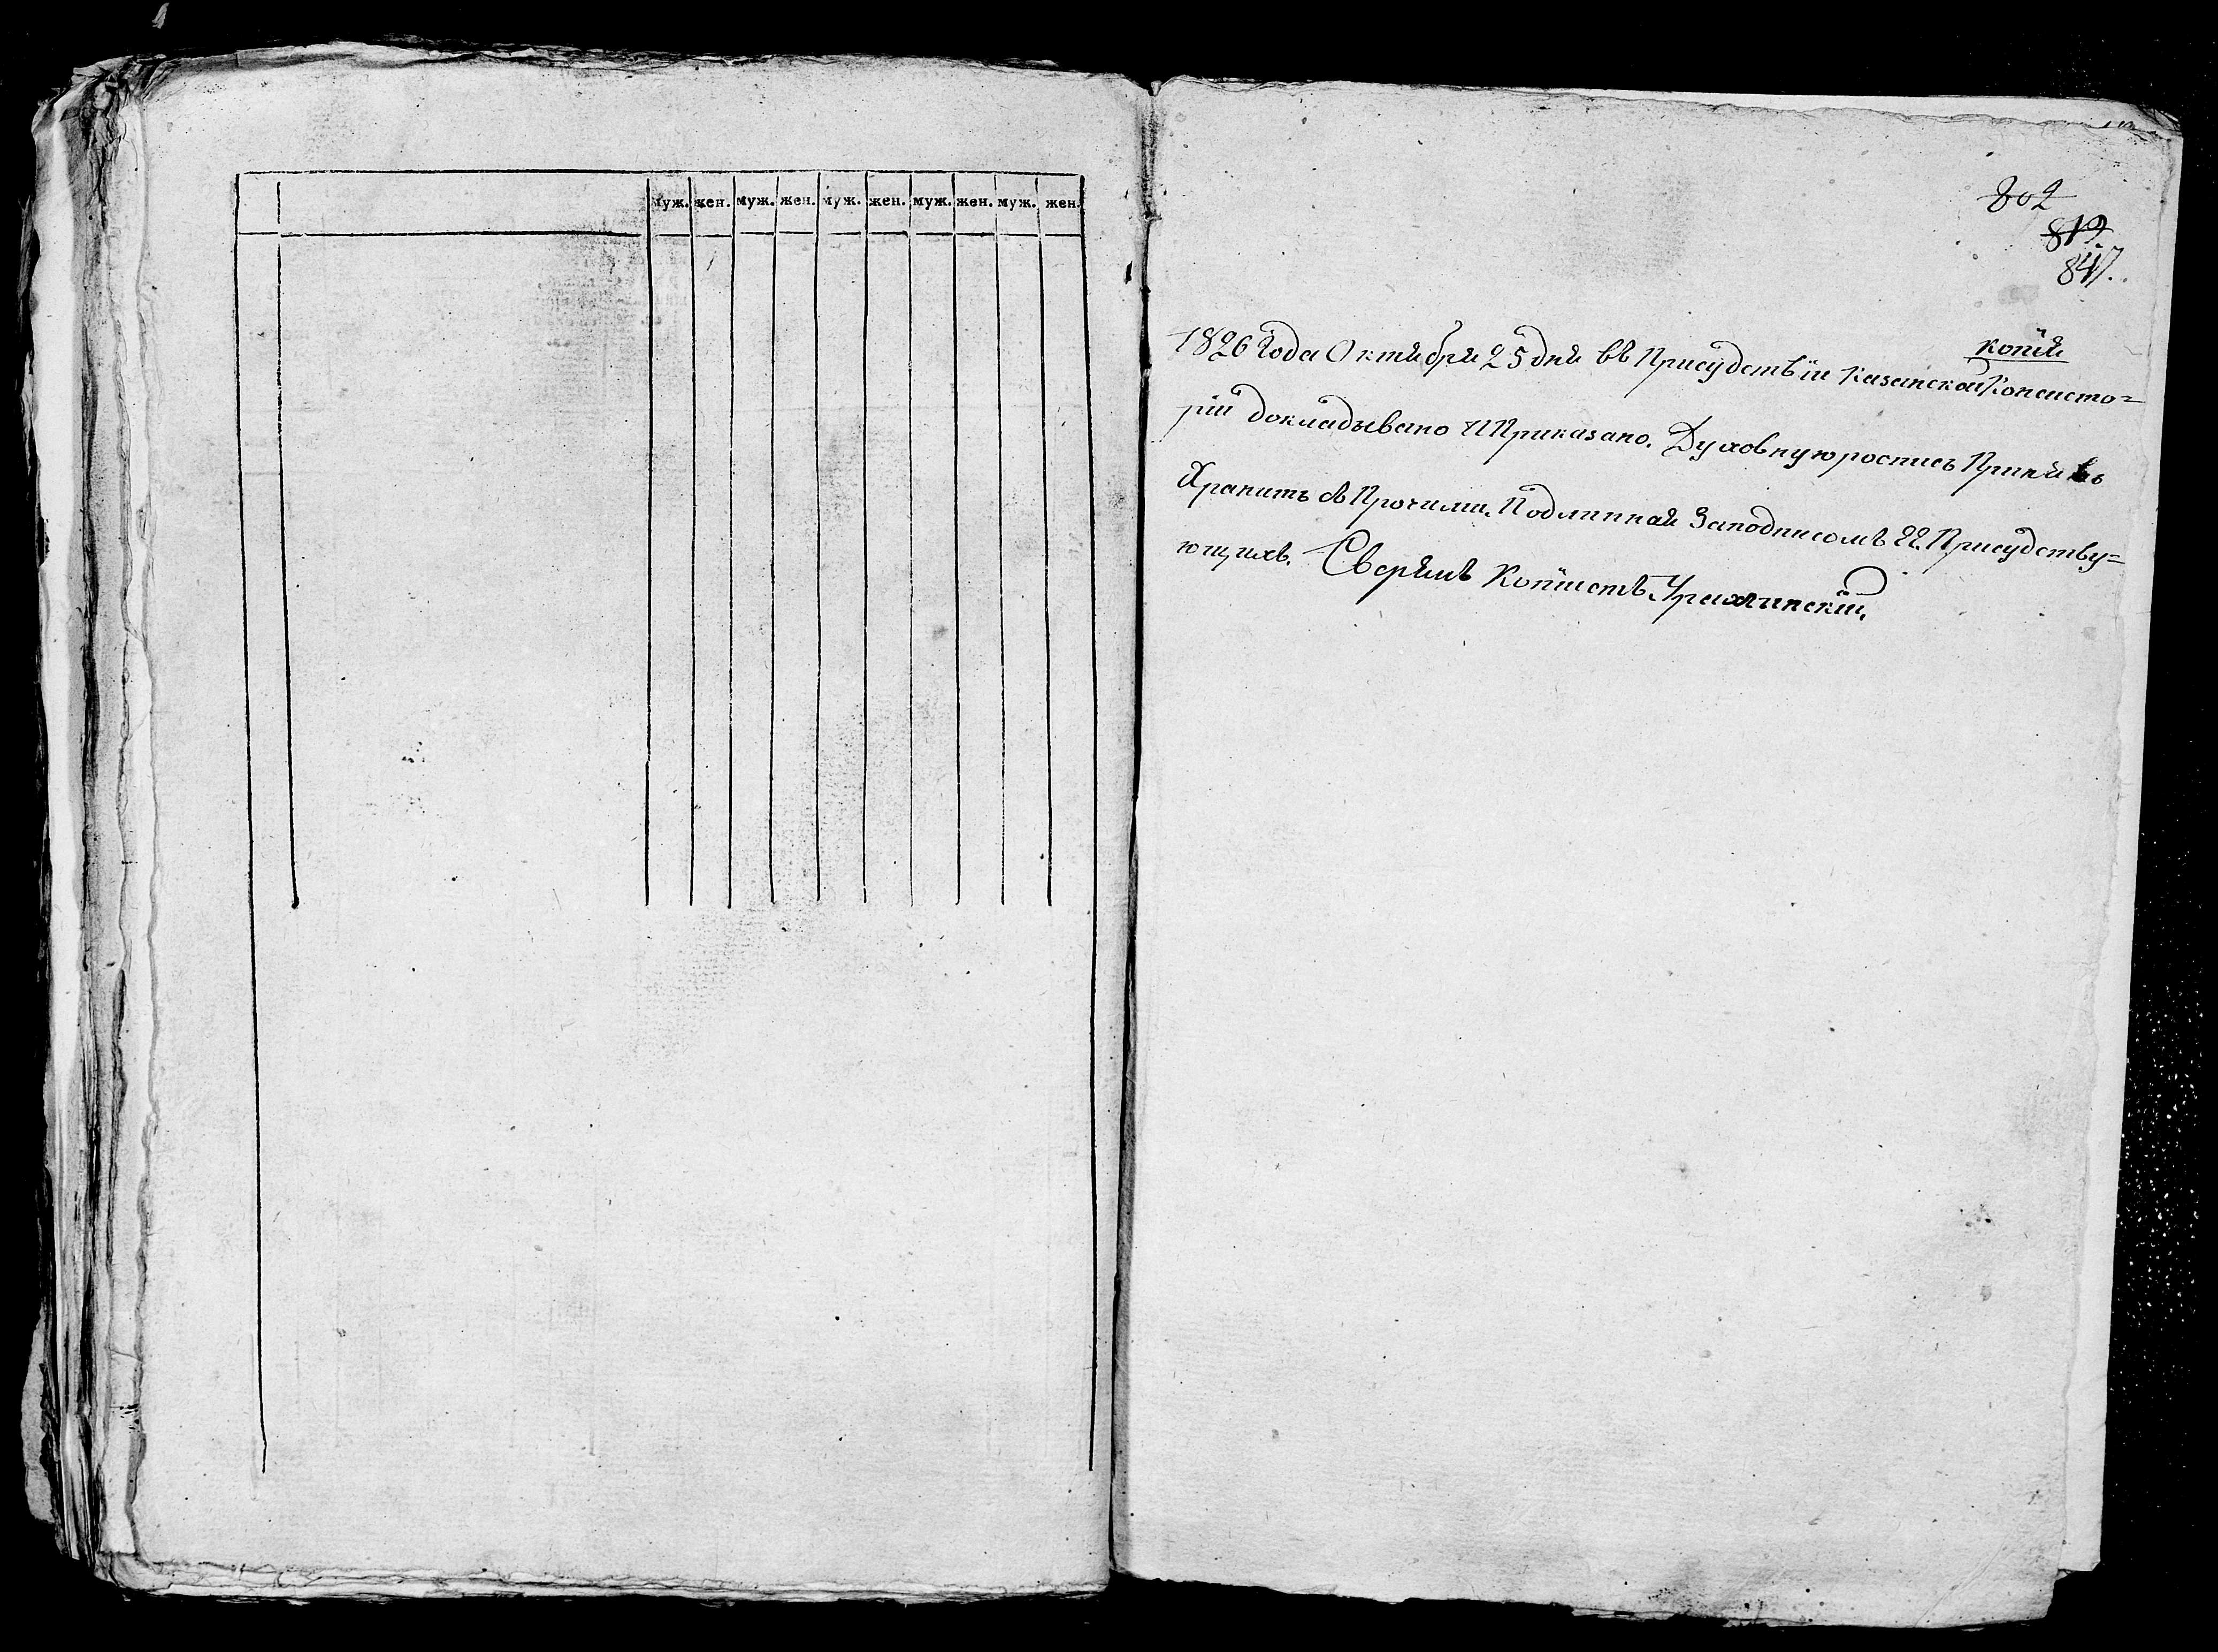 муж. жен. муж. жен. муж. жен. муж. жен. муж. жен.
802
819
847.
копія
1826 года Октября 25 дня въ Присудствіи Казанской Консисто=
ріи докладывано И Приказано. Духовную роспись Принявъ
Хранить съ Прочими. Подлинная Заподписомъ ГГ. Присудству=
ющихъ. Сверялъ Копіистъ